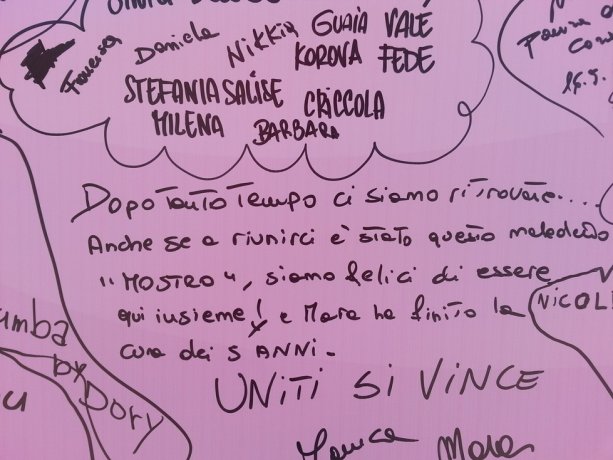 Daniela Nikkia GUAIA VALE
Francesca KOROVA FEDE
STEFANIA SALISE CRICCOLA
MILENA BARBARA
Dopo tanto tempo ci siamo ritrovate...
Anche se a riunirci è stato questo maledetto
"MOSTRO", siamo felici di essere
qui insieme! e Mara ha finito la
cura dei 5 ANNI.
UNITI SI VINCE
Monica Mara
NICOL
umba
by Dory